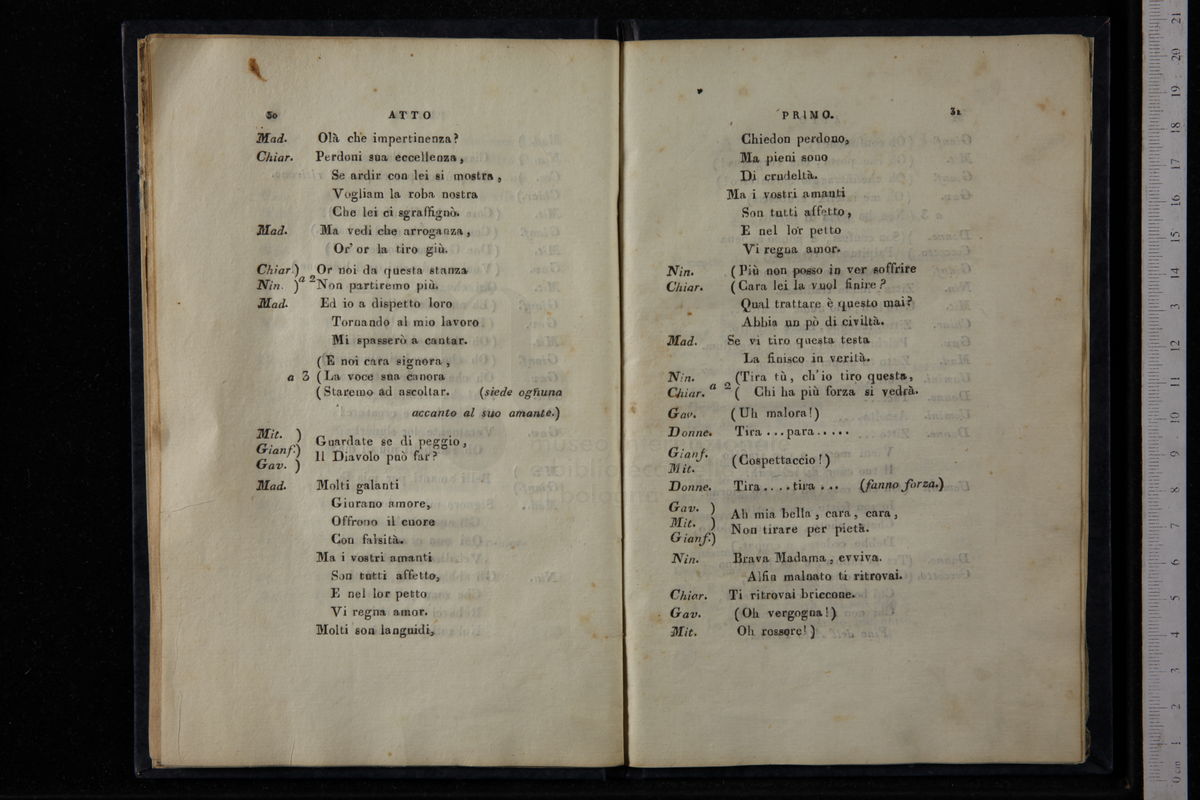 30 ATTO
Mad. Olà che impertinenza?
Chiar. Perdoni sua eccellenza,
Se ardir con lei si mostra,
Vogliam la roba nostra
Che lei ci sgraffignò.
Mad. Ma vedi che arroganza,
Or' or la tiro giù.
Chiar.) Or noi da questa stanza
Nin. ) a 2 Non partiremo più.
Mad. Ed io a dispetto loro
Tornando al mio lavoro
Mi spasserò a cantar.
(E noi cara signora,
a 3 (La voce sua canora
(Staremo ad ascoltar. (siede ognuna
accanto al suo amante.)
Mit. )
Gianf.) Guardate se di peggio,
Gav. ) Il Diavolo può far?
Mad. Molti galanti
Giurano amore,
Offrono il cuore
Con falsità.
Ma i vostri amanti
Son tutti affetto,
E nel lor petto
Vi regna amor.
Molti son languidi,
PRIMO. 31
Chiedon perdono,
Ma pieni sono
Di crudeltà.
Ma i vostri amanti
Son tutti affetto,
E nel lor petto
Vi regna amor.
Nin. (Più non posso in ver soffrire
Chiar. (Cara lei la vuol finire?
Qual trattare è questo mai?
Abbia un pò di civiltà.
Mad. Se vi tiro questa testa
La finisco in verità.
Nin. (Tira tù, ch'io tiro questa,
Chiar. a 2 ( Chi ha più forza si vedrà.
Gav. (Uh malora!)
Donne. Tira ... para.....
Gianf.
Mit. (Cospettaccio!)
Donne. Tira.... tira ... (fanno forza.)
Gav. )
Mit. ) Ah mia bella, cara, cara,
Gianf.) Non tirare per pietà.
Nin. Brava Madama, evviva.
Alfin malnato ti ritrovai.
Chiar. Ti ritrovai briccone.
Gav. (Oh vergogna!)
Mit. Oh rossore!)